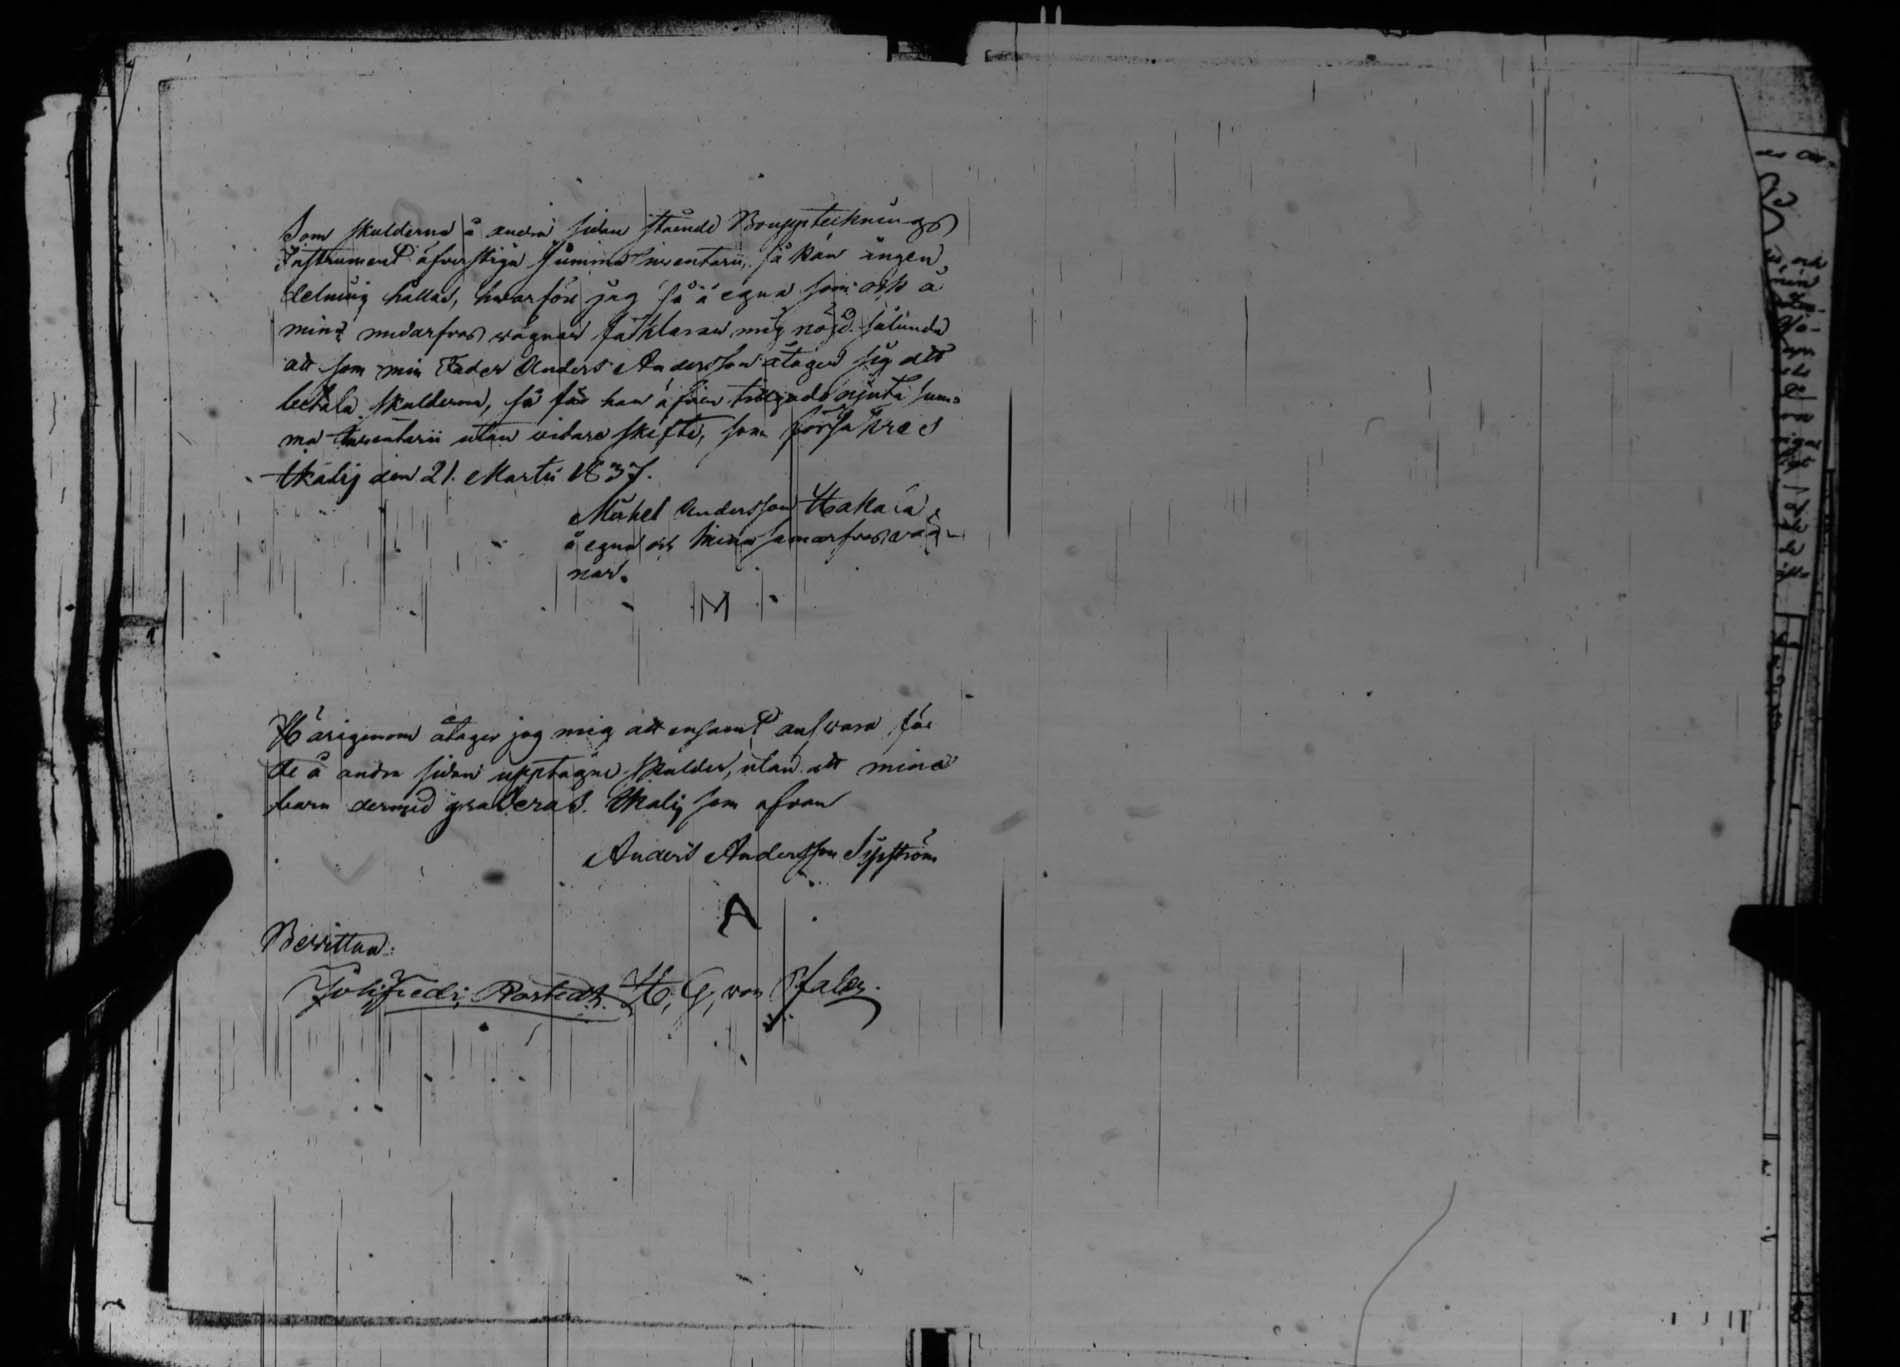 Som skulderna å andra sidan stående Bouppteknings
Instrument öfverstiga Summa Inventarii, så kan ingen
delning hållas, hwarföre jag så å egna som ock å
mina medarfvas wägnar förklarar mig nöjd sålunda
att som min Fader Anders Andersson åtager sig att
betala skulderna, så får han äfven tillgodo njuta Sum-
ma Inventarii utan vidare skifte, som försäkras
den 21. Martii 1837.
Michel Andersson Hakala,
å egna och mina samarfvas väg-
nar.
M
Härigenom åtager jag mig att ensamt answara för
de å andra sidan upptagne skulder, utan att mina
barn dermed graveras. som ofvan
Anders Andersson Sippström
A
Bevittna:
H. G. von Pfaler.